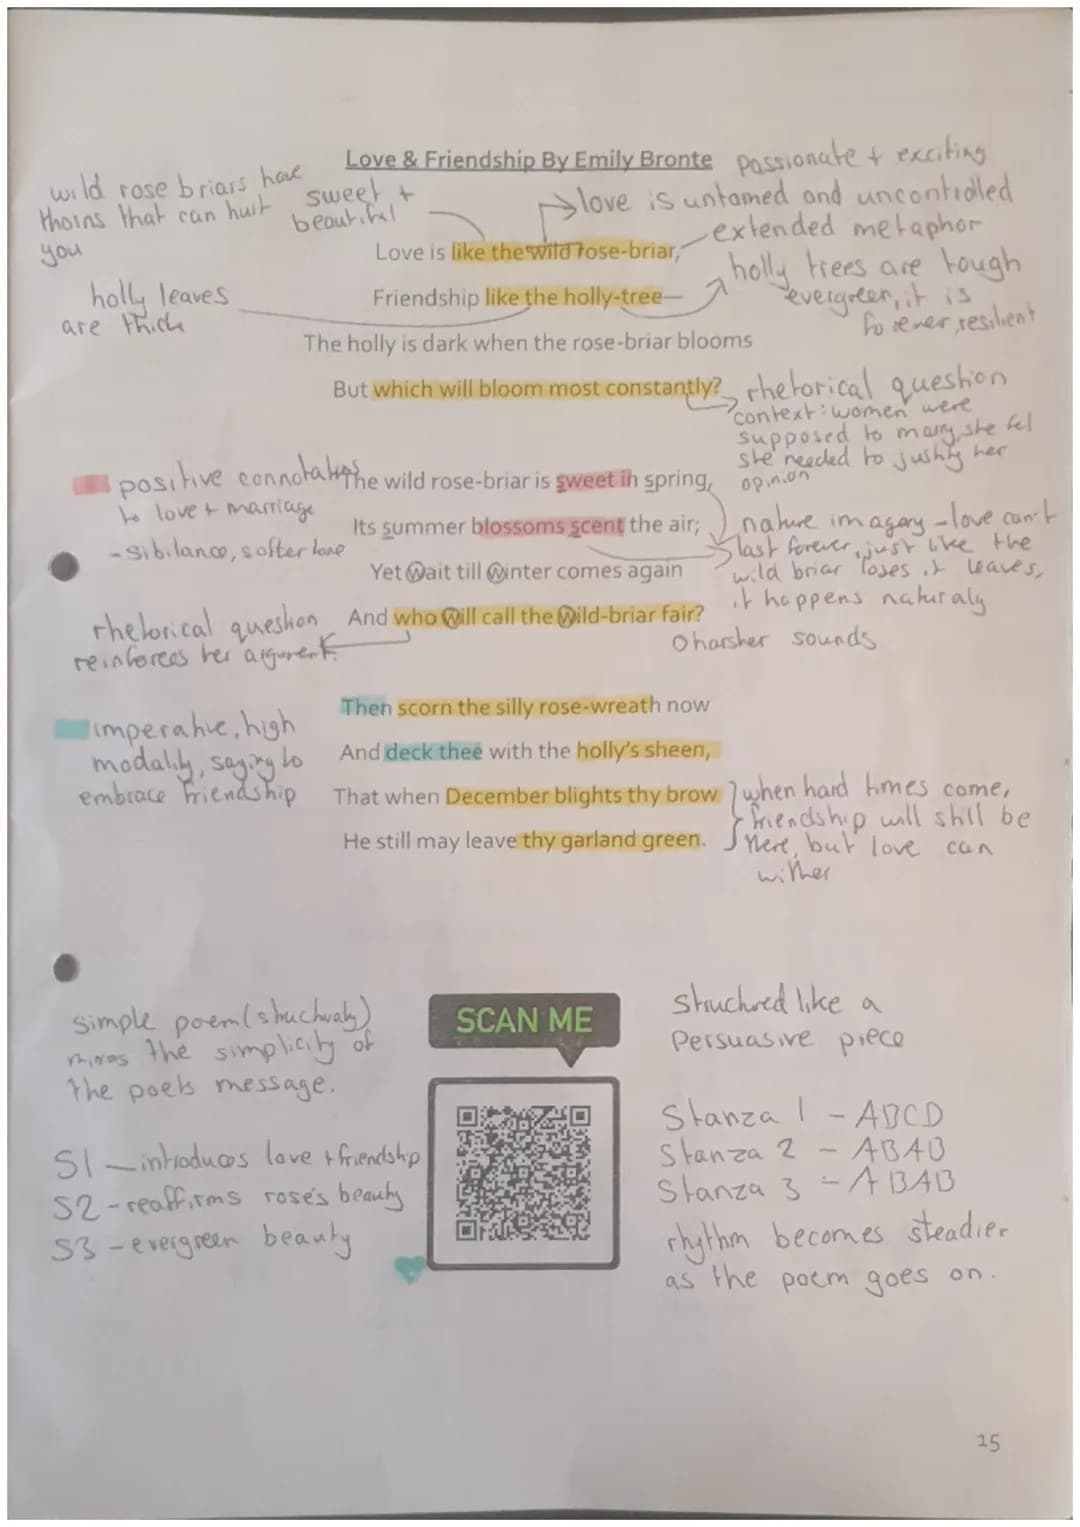 Love & Friendship By Emily Bronte
passionate + exciting
wild rose briars have
thorns that can hurt
you
sweet +
beautiful
love is untamed and uncontrolled
extended metaphor
Love is like the wild rose-briar,
holly trees are tough
evergreen, it is
forever resilient
holly leaves
are thick
Friendship like the holly-tree—
The holly is dark when the rose-briar blooms
But which will bloom most constantly?
rhetorical question
context: women were
supposed to marry, she fel
she needed to justify her
opinion
positive connotations
to love + marriage
- sibilance, softer tone
The wild rose-briar is sweet in spring,
Its summer blossoms scent the air;
Yet Wait till Winter comes again
And who Will call the Wild-briar fair?
nature imagery - love can't
last forever, just like the
wild briar loses it leaves,
it happens naturaly
O harsher sounds
rhetorical question
reinforces her argument.
Then scorn the silly rose-wreath now
And deck thee with the holly's sheen,
That when December blights thy brow
He still may leave thy garland green.
imperative, high
modality, saying to
embrace friendship
when hard times come,
friendship will still be
there, but love can
wither
simple poem (structuraly)
the simplicity of
the poets message.
S1 - introduces love + friendship
S2 - reaffirms rose's beauty
S3 - evergreen beauty
SCAN ME
Structured like a
Persuasive piece
Stanza 1 - ABCD
Stanza 2 - ABAB
Stanza 3 - ABAB
rhythm becomes steadier
as the poem goes on.
15